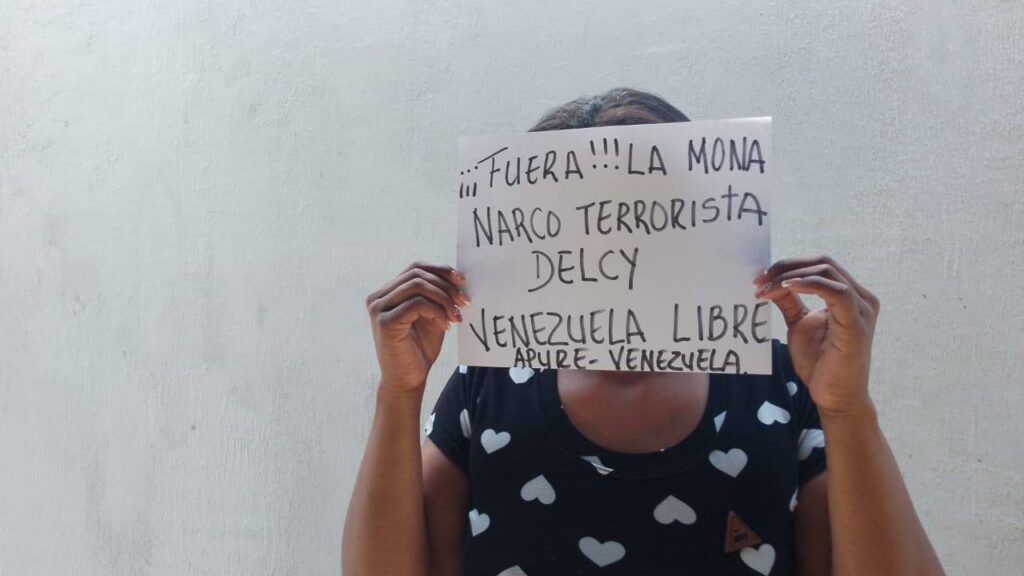 ¡¡¡FUERA!!! LA MONA
NARCO TERRORISTA
DELCY
VENEZUELA LIBRE
APURE- VENEZUELA.